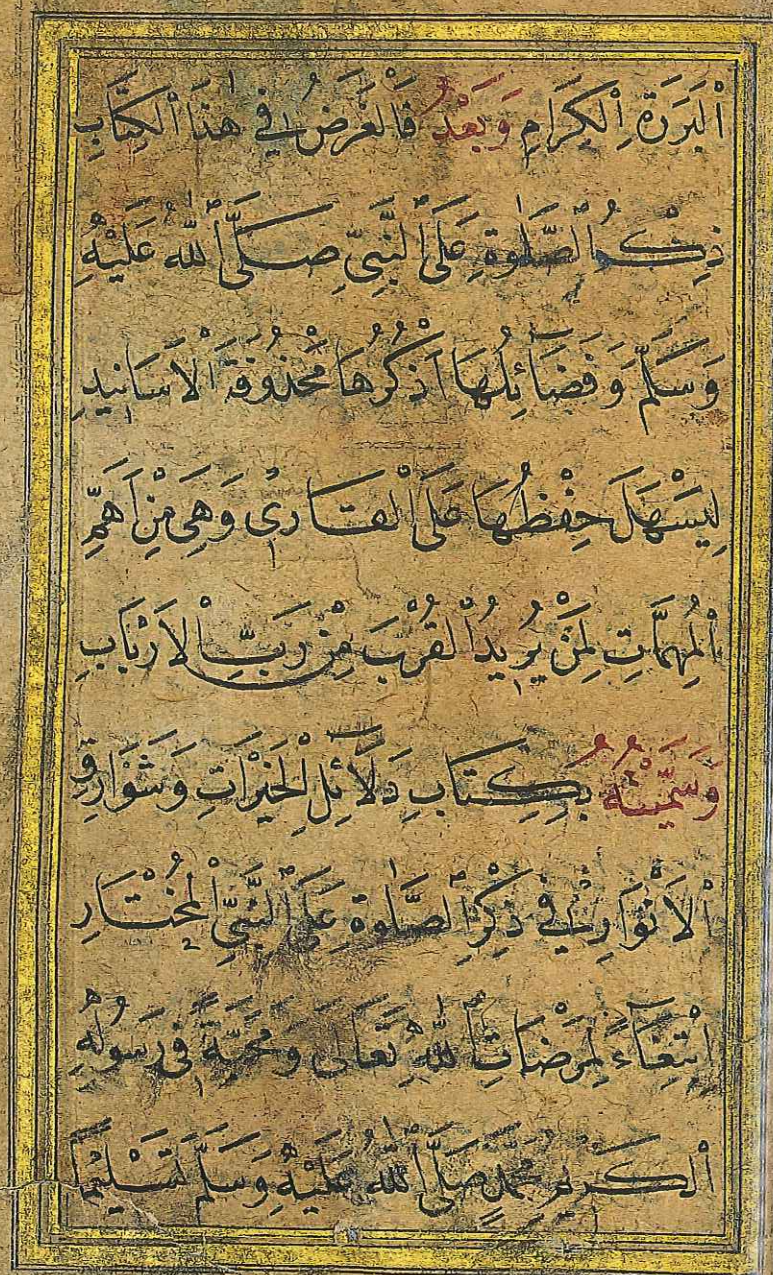 اَلْبَرَرَةِ اِلْكِرَامِ وَبَعْدُ فَالْغَرَضُ فِي هٰذَا الْكِتَابِ
ذِكْرُ الصَّلٰوةِ عَلَى النَّبِيِّ صَلَّى اللّٰهُ عَلَيْهِ
وَسَلَّمَ وَفَضَائِلُهَا اَذْكُرُهَا مَحْذُوفَةَ الْاَسَانِيدِ
لِيَسْهَلَ حِفْظُهَا عَلَى الْقَارِئِ وَهِيَ مِنْ اَهَمِّ
الْمُهِمَّاتِ لِمَنْ يُرِيدُ الْقُرْبَ مِنْ رَبِّ الْاَرْبَابِ
وَسَمَّيْتُهُ بِكِتَابِ دَلَائِلِ الْخَيْرَاتِ وَشَوَارِقِ
الْاَنْوَارِ فِي ذِكْرِ الصَّلٰوةِ عَلَى النَّبِيِّ الْمُخْتَارِ
اِبْتِغَاءً لِمَرْضَاتِ اللّٰهِ تَعَالَى وَمَحَبَّةً فِي رَسُولِهِ
الْكَرِيمِ مُحَمَّدٍ صَلَّى اللّٰهُ عَلَيْهِ وَسَلَّمَ تَسْلِيمًا